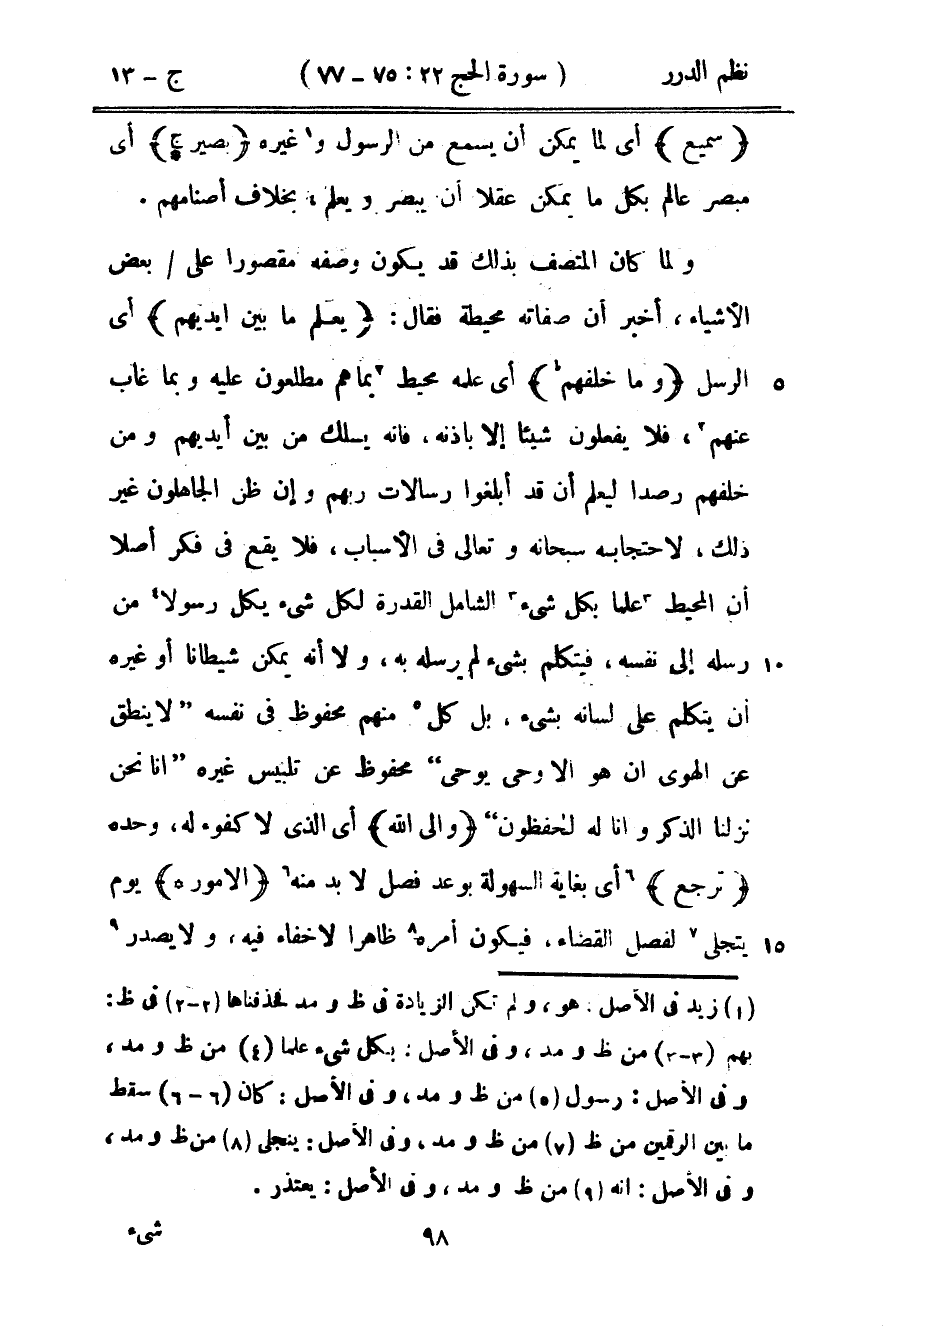 نظم الدرر ( سورة الحج ٢٢ : ٧٥ – ٧٧ ) ج – ١٣
﴿ سميع ﴾ أى لما يمكن أن يسمع من الرسول و١ غيره ﴿ بصير ج ﴾ أى
مبصر عالم بكل ما يمكن عقلا أن يبصر و يعلم ، بخلاف أصنامهم .
و لما كان المتصف بذلك قد يكون وصفه مقصورا على / بعض
الأشياء ، أخبر أن صفاته محيطة فقال : ﴿ يعلم ما بين ايديهم ﴾ أى
٥ الرسل ﴿ و ما خلفهم ط ﴾ أى علمه محيط ٢بما هم مطلعون عليه و بما غاب
عنهم٢ ، فلا يفعلون شيئا إلا باذنه ، فانه يسلك من بين أيديهم و من
خلفهم رصدا ليعلم أن قد أبلغوا رسالات ربهم و إن ظن الجاهلون غير
ذلك ، لاحتجابه سبحانه و تعالى فى الأسباب ، فلا يقع فى فكر أصلا
أن المحيط ٣علما بكل شىء٣ الشامل القدرة لكل شىء يكل رسولا٤ من
١٠ رسله إلى نفسه ، فيتكلم بشىء لم يرسله به ، و لا أنه يمكن شيطانا أو غيره
أن يتكلم على لسانه بشىء ، بل كل٥ منهم محفوظ فى نفسه ”لا ينطق
عن الهوى ان هو الا وحى يوحى“ محفوظ عن تلبيس غيره ”انا نحن
نزلنا الذكر و انا له لحٰفظون“ ﴿ و الى الله ﴾ أى الذى لا كفوء له ، وحده
﴿ ترجع ﴾ ٦أى بغاية السهولة بوعد فصل لا بد منه٦ ﴿ الامور ٥ ﴾ يوم
١٥ يتجلى٧ لفصل القضاء ، فيكون أمره٨ ظاهرا لا خفاء فيه ، و لا يصدر٩
(١) زيد فى الأصل : هو ، و لم تكن الزيادة فى ظ و مد فحذفناها (٢-٢) فى ظ :
بهم (٣-٣) من ظ و مد ، و فى الأصل : بكل شىء علما (٤) من ظ و مد ،
و فى الأصل : رسول (٥) من ظ و مد ، و فى الأصل : كان (٦ – ٦) سقط
ما بين الرقمين من ظ (٧) من ظ و مد ، و فى الأصل : ينجلى (٨) من ظ و مد ،
و فى الأصل : انه (٩) من ظ و مد ، و فى الأصل : يعتذر .
٩٨ شىء